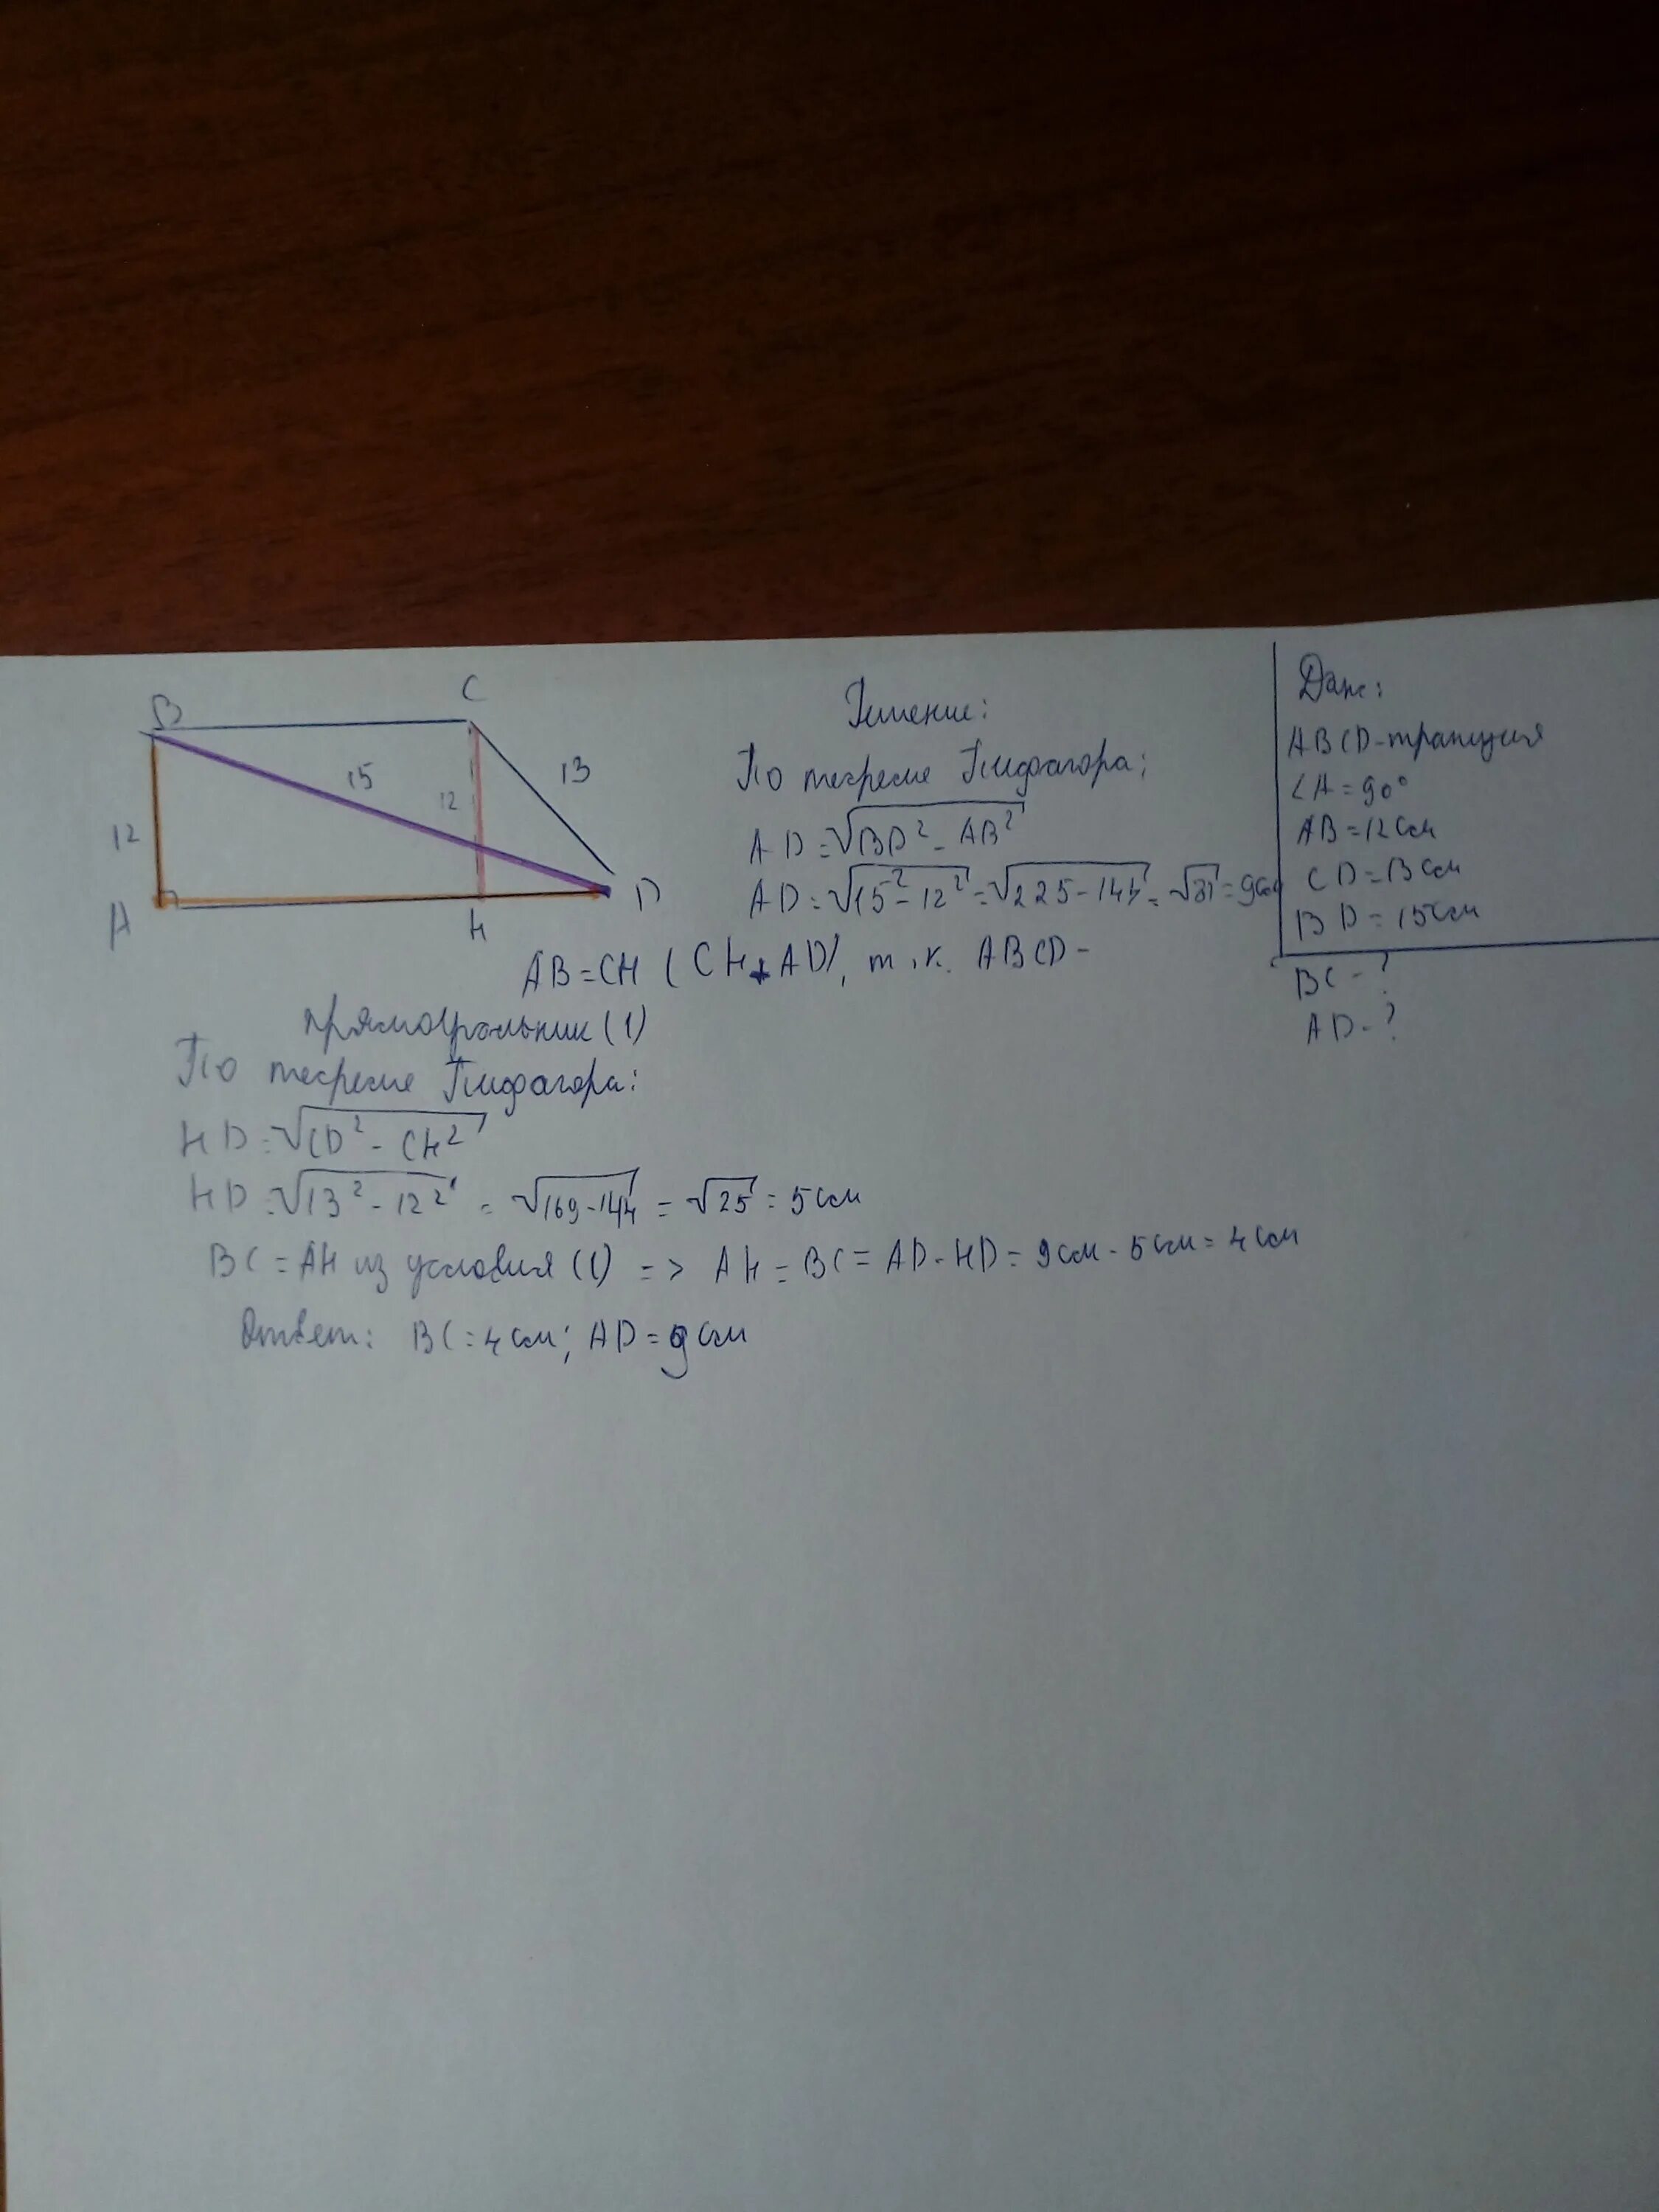 B
C
15
12
13
12
A
H
D
Решение:
По теореме Пифагора:
AD = √BD² - AB²
AD = √15² - 12² = √225 - 144 = √81 = 9см
Дано:
ABCD - трапеция
∠A = 90°
AB = 12 см
CD = 13 см
BD = 15 см
BC - ?
AD - ?
AB = CH (CH ⊥ AD), т.к. ABCD -
прямоугольник (1)
По теореме Пифагора:
HD = √CD² - CH²
HD = √13² - 12² = √169 - 144 = √25 = 5 см
BC = AH из условия (1) => AH = BC = AD - HD = 9 см - 5 см = 4 см
Ответ: BC = 4 см; AD = 9 см